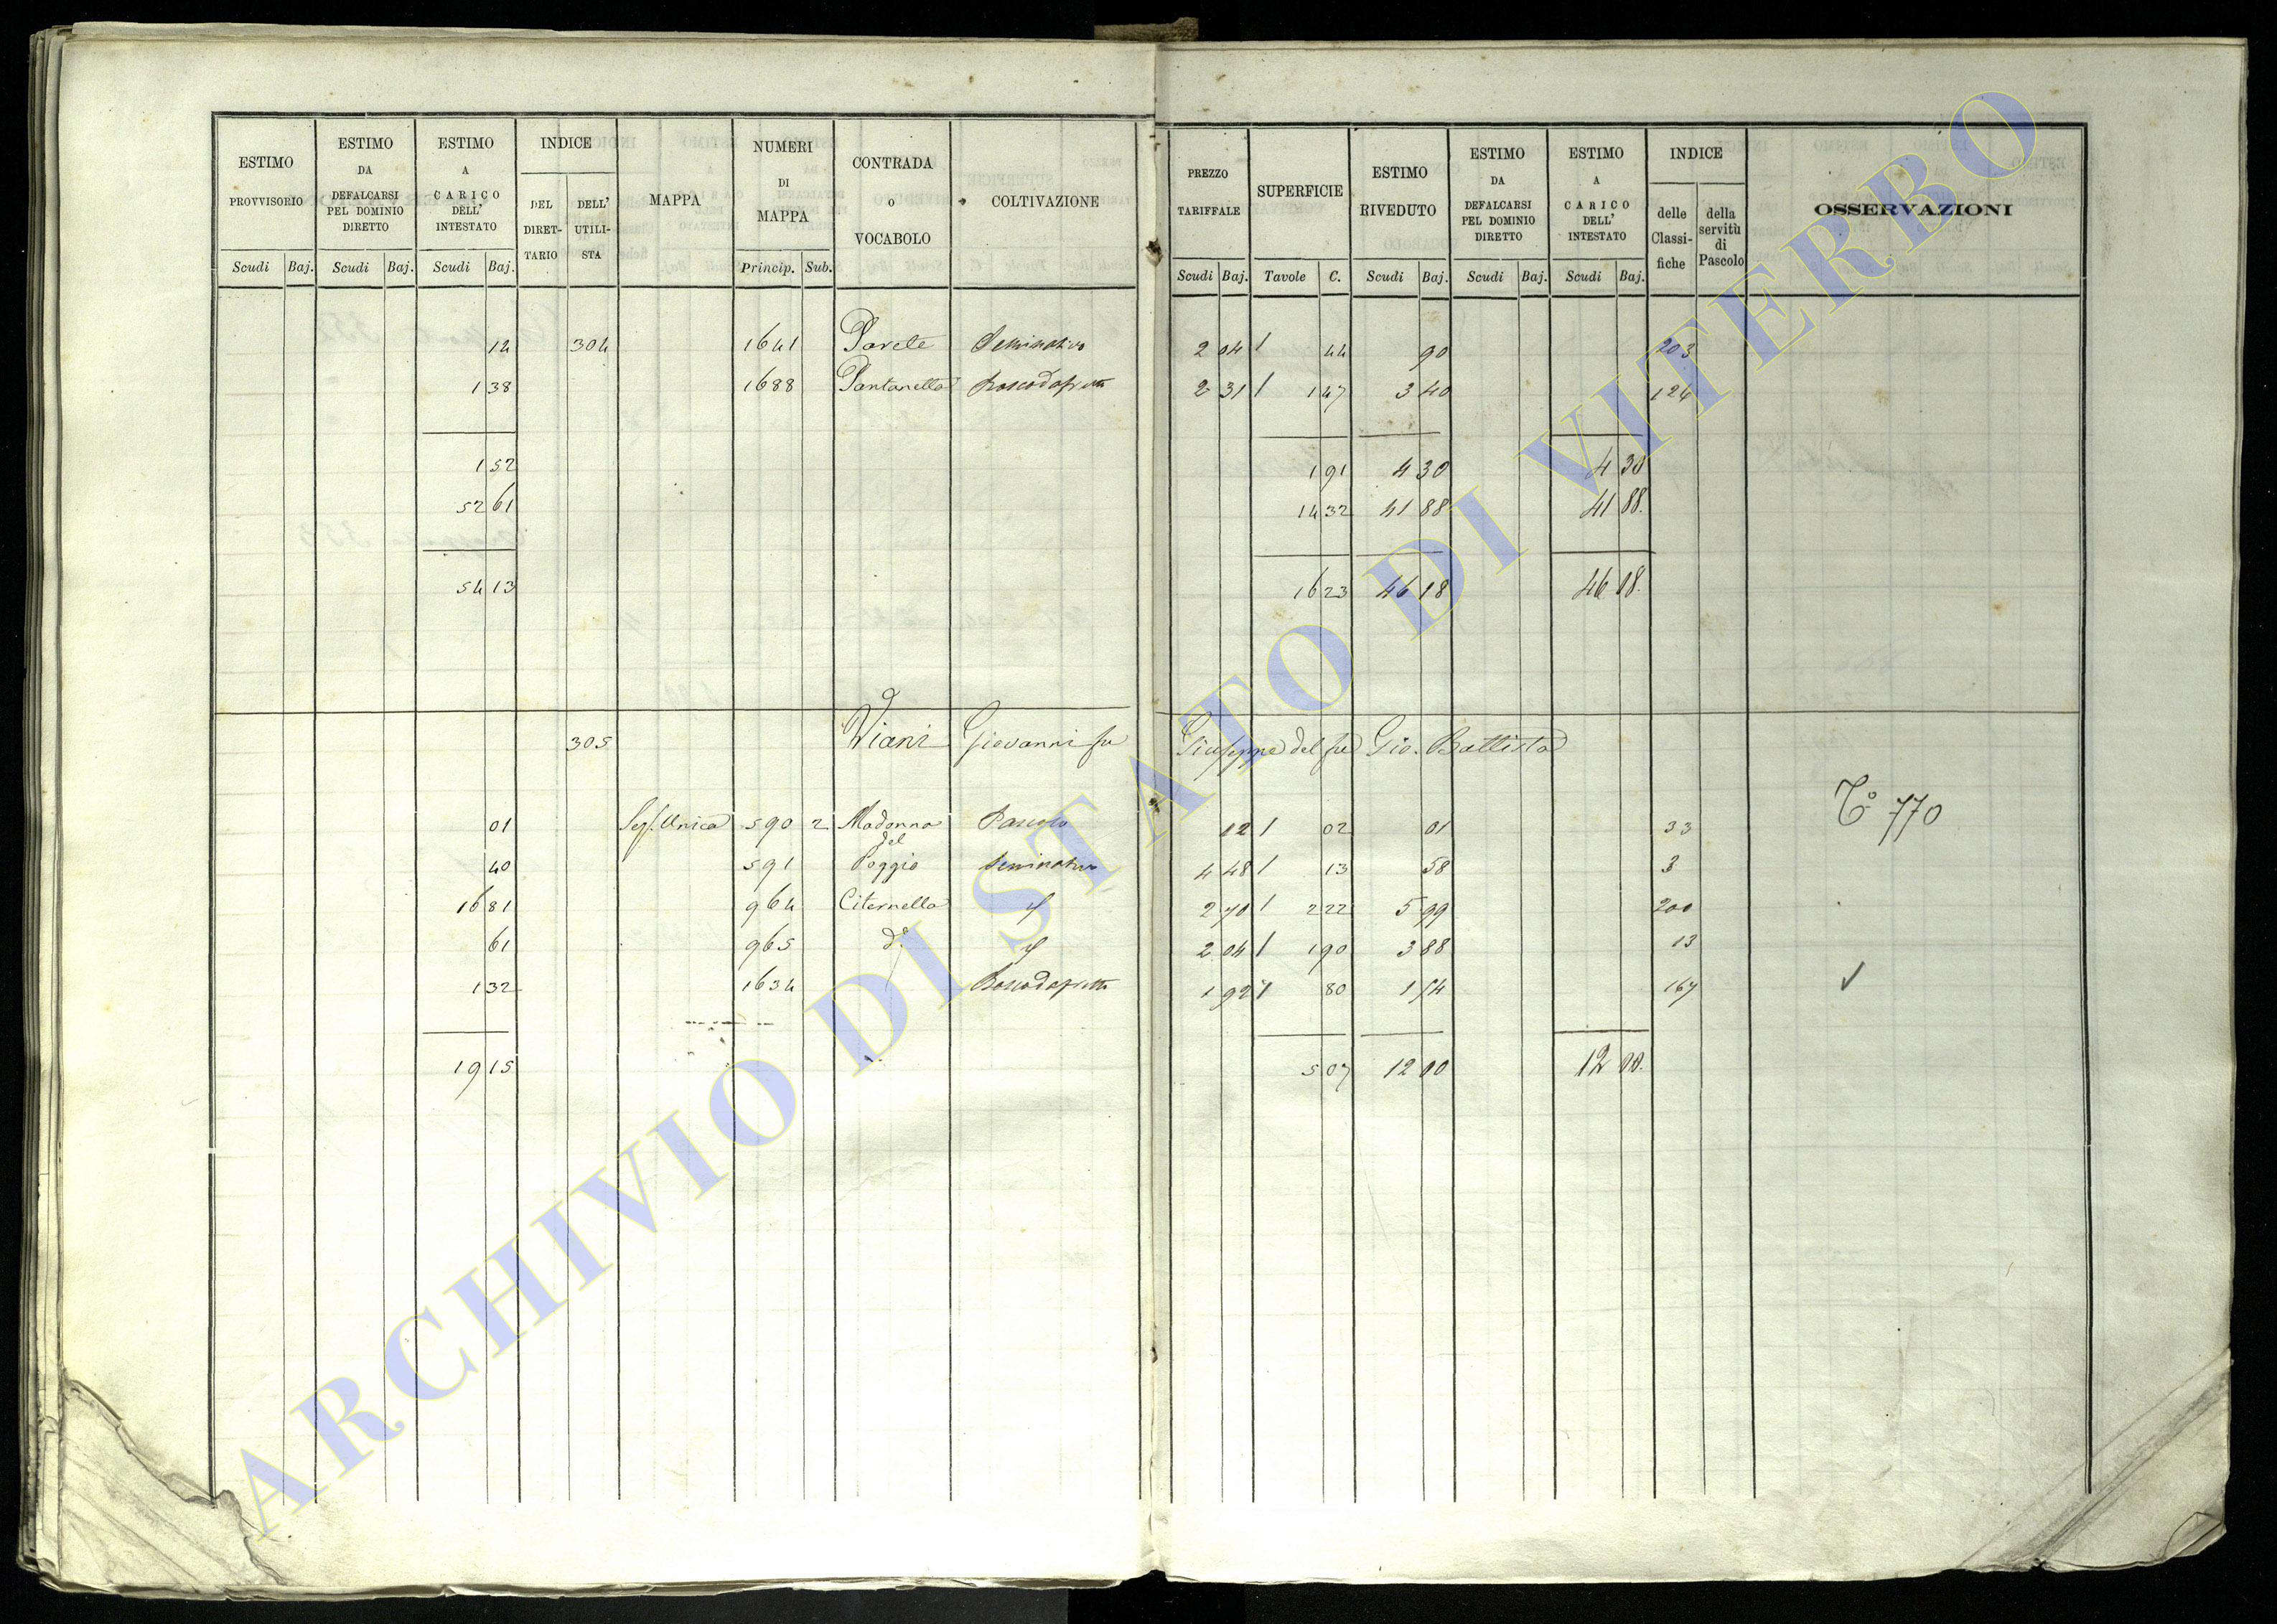 ESTIMO PROVVISORIO | ESTIMO DA DEFALCARSI PEL DOMINIO DIRETTO | ESTIMO A CARICO DELL' INTESTATO | INDICE DEL DIRET-TARIO | DELL' UTILI-STA | MAPPA | NUMERI DI MAPPA | CONTRADA o VOCABOLO | COLTIVAZIONE | PREZZO TARIFFALE | SUPERFICIE | ESTIMO RIVEDUTO | ESTIMO DA DEFALCARSI PEL DOMINIO DIRETTO | ESTIMO A CARICO DELL' INTESTATO | INDICE delle Classi-fiche | della servitù di Pascolo | OSSERVAZIONI
Scudi Baj. | Scudi Baj. | Scudi Baj. | Princip. Sub. | Scudi Baj. | Tavole C. | Scudi Baj. | Scudi Baj. | Scudi Baj.
14 | 304 | 1641 | Parete | Seminativo | 2 04 | 44 | 90 | 203
1 38 | 1688 | Pantanella | Boscodafrutto | 2 31 | 1 47 | 3 40 | 124
1 52 | 1 91 | 4 30 | 4 30
52 61 | 14 32 | 41 88 | 41 88.
54 13 | 16 23 | 46 18 | 46 18.
305 | Viani Giovanni fu Giuseppe del fu Gio. Battista
01 | Sez. Unica | 590 2 | Madonna del | Pascolo | 02 | 01 | 33 | 770
40 | 591 | Poggio | Seminativo | 4 48 | 13 | 58 | 3
16 81 | 964 | Citernella | 2 70 | 2 22 | 5 99 | 200
61 | 965 | do. | 2 04 | 1 90 | 3 88 | 13
1 32 | 1634 | Boscodafrutto | 1 92 | 80 | 1 54 | 167
19 15 | 5 07 | 12 00 | 12 00.
ARCHIVIO DI STATO DI VITERBO